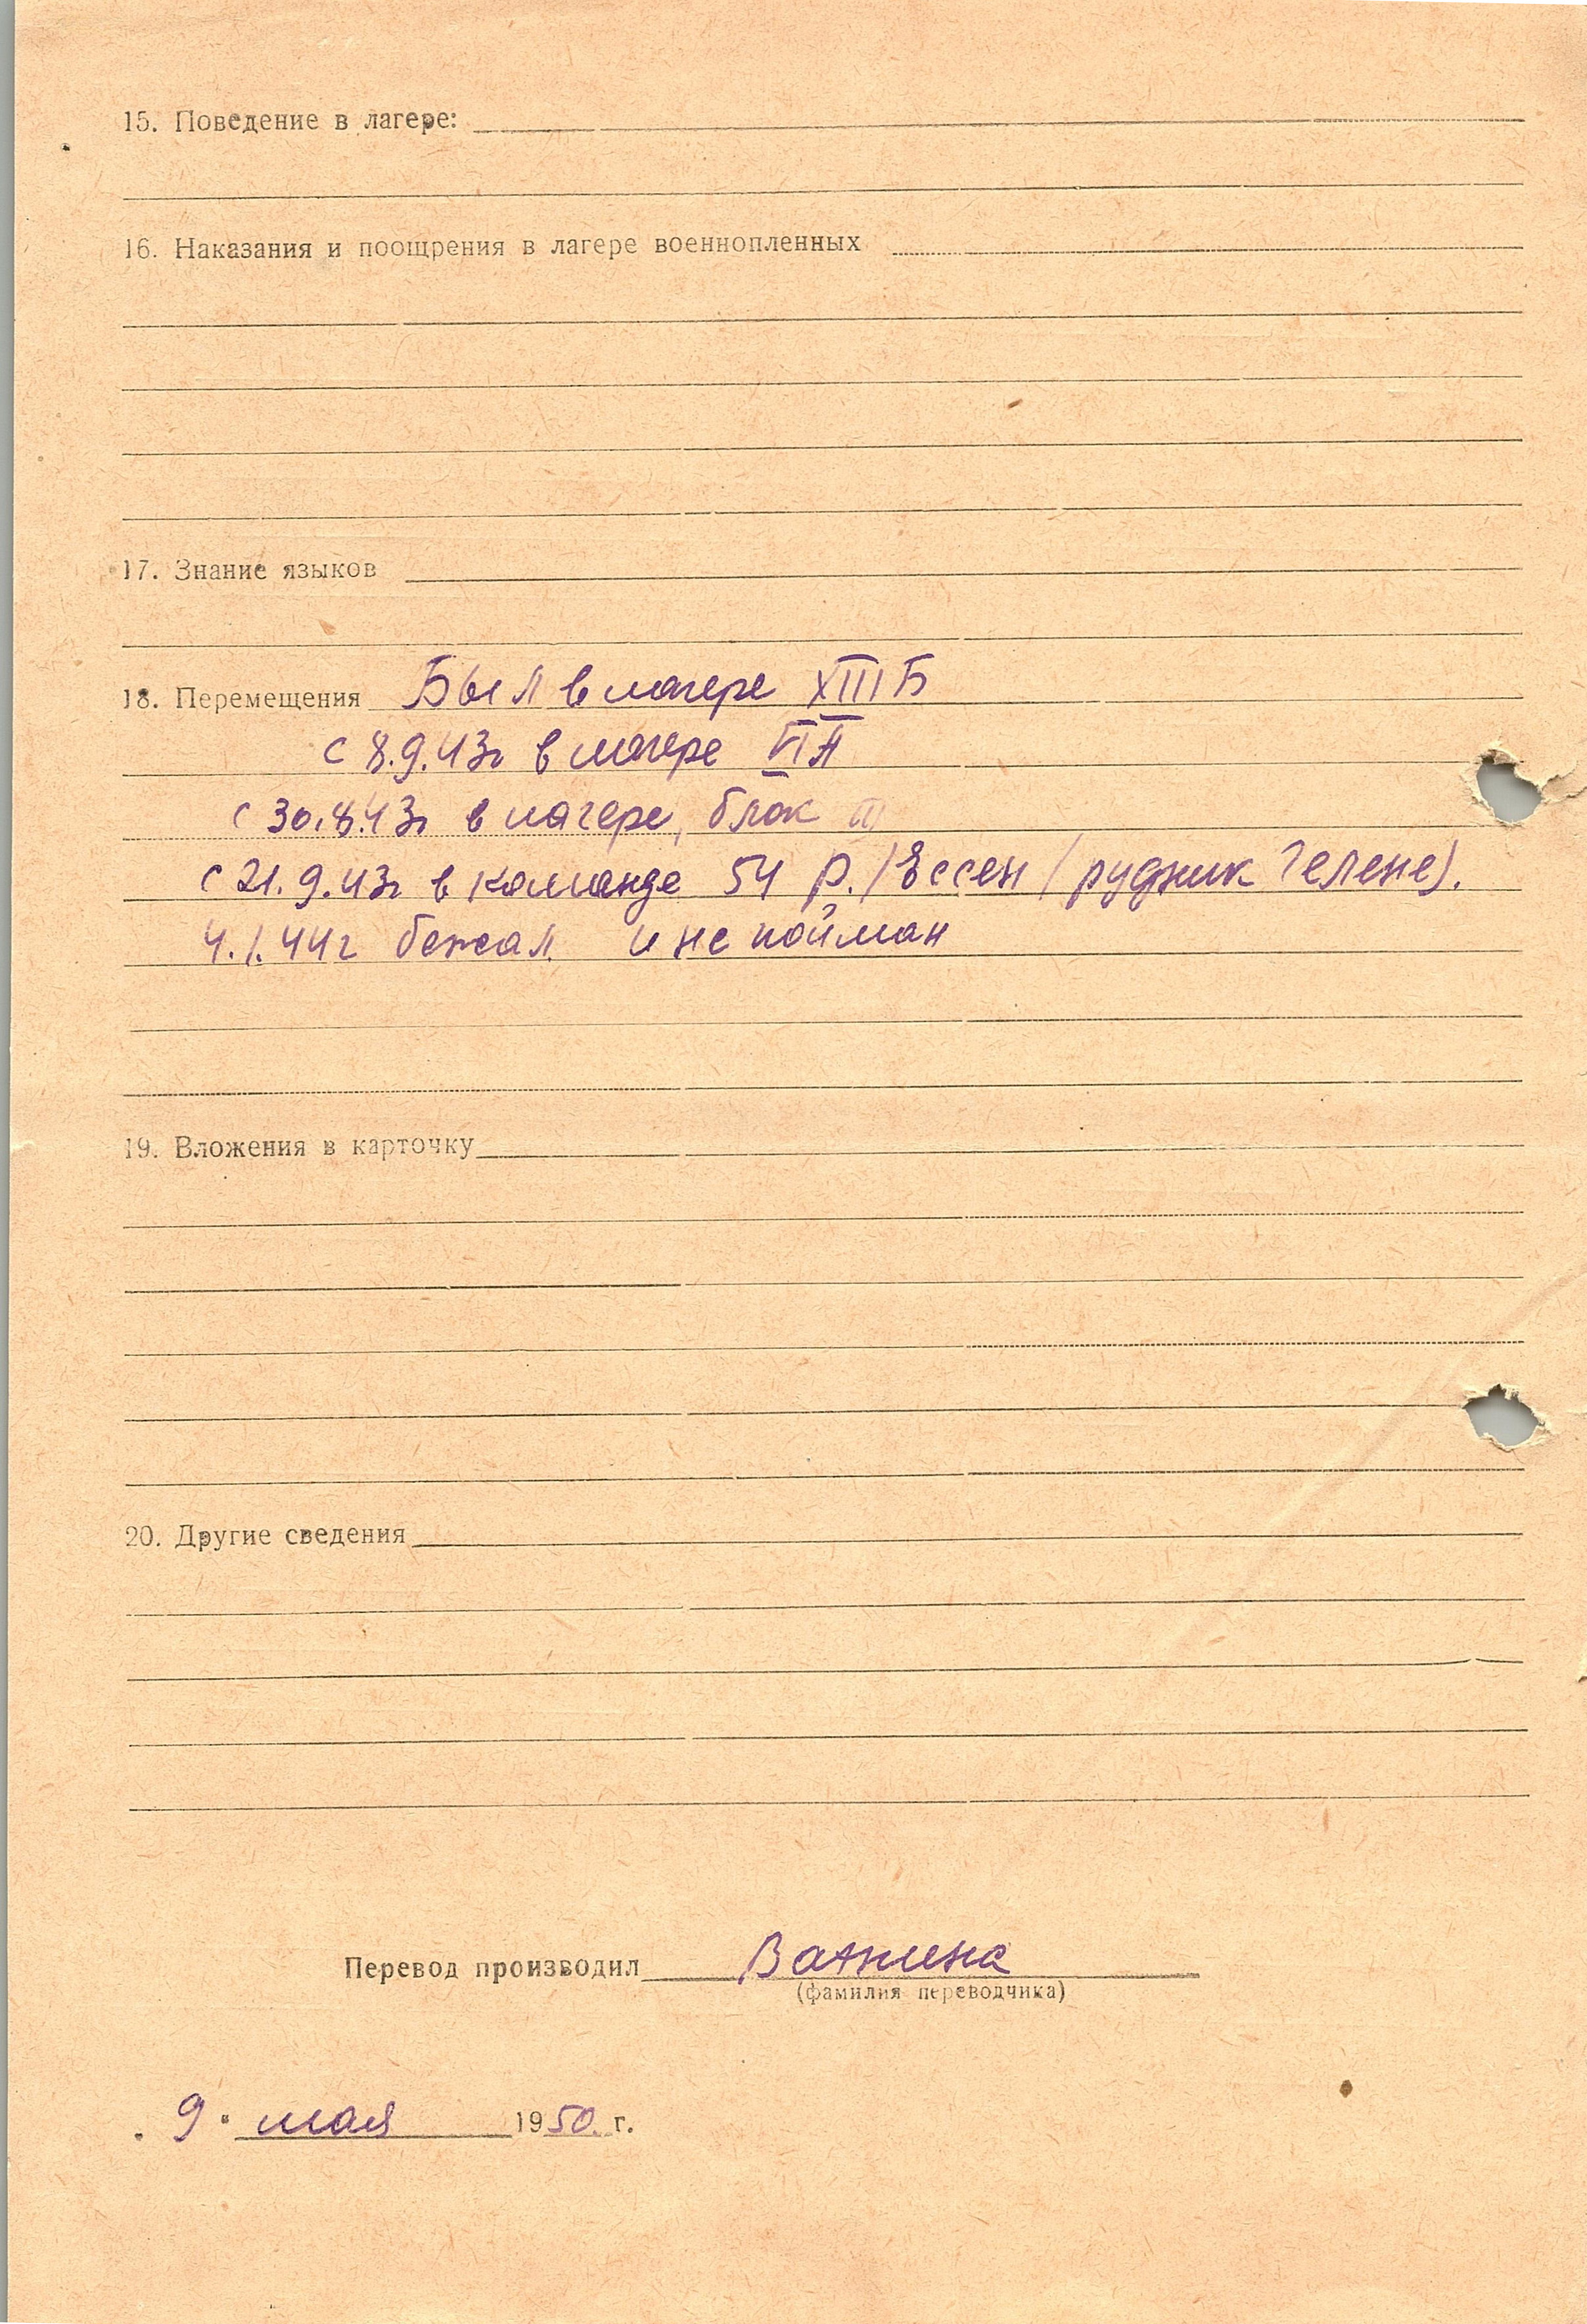 15. Поведение в лагере:
16. Наказания и поощрения в лагере военнопленных
17. Знание языков
18. Перемещения Был в лагере XIII Б
с 8.9.43г в лагере VI А
с 30.8.43г в лагере, блок III
с 21.9.43г в команде 54 р. /Ессен / рудник Гелене).
4.1.44г бежал и не пойман
19. Вложения в карточку
20. Другие сведения
Перевод производил
(фамилия переводчика)
„ 9 " мая 1950 г.